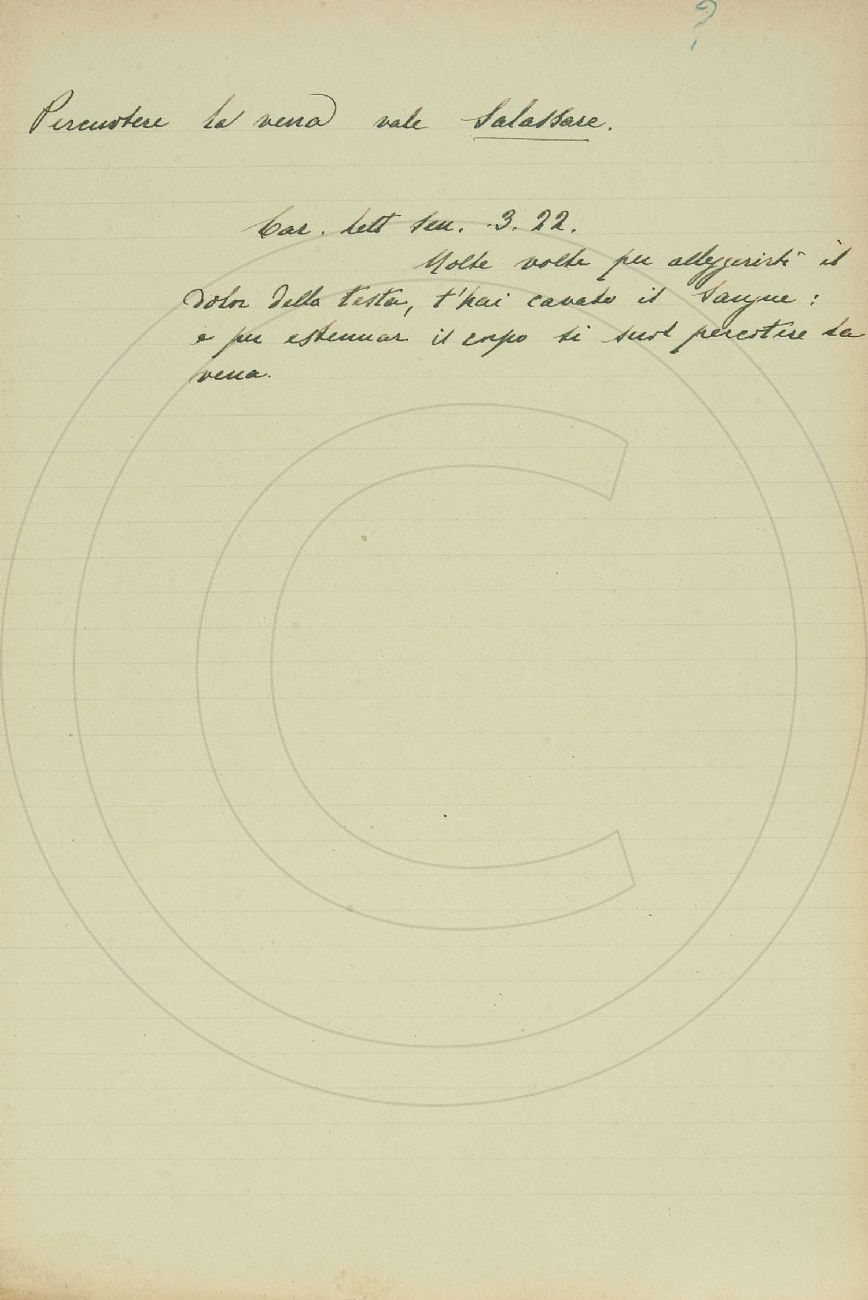 ?
Percuotere la vena vale Salassare.
Car. lett Sen. 3. 22.
Molte volte per alleggerirti il
dolor della testa, t'hai cavato il sangue:
e per estenuar il corpo si suol percotere la
vena.